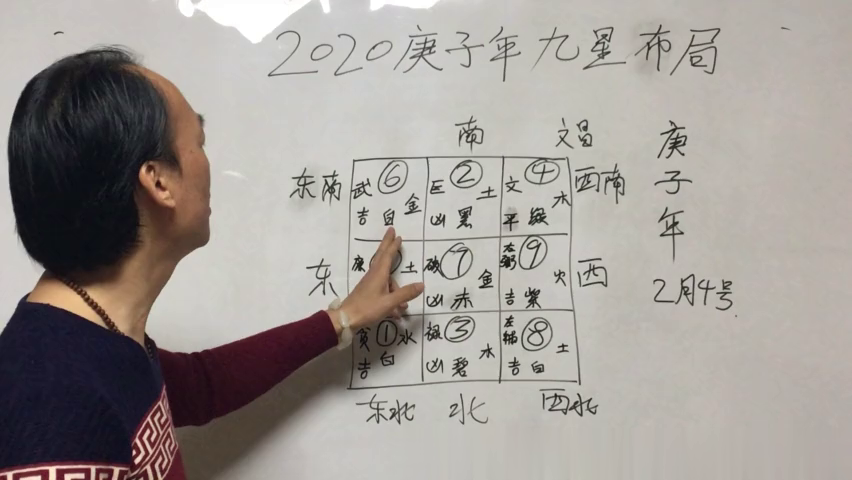 2020庚子年九星布局
南 文昌
东南 武⑥金 巨②土 文④木 西南
吉白 凶黑 平绿
东 廉 土 破⑦金 左弼⑨火 西
凶赤 吉紫
贪①水 禄③木 左辅⑧土
吉白 凶碧 吉白
东北 北 西北
庚子年
2月4号